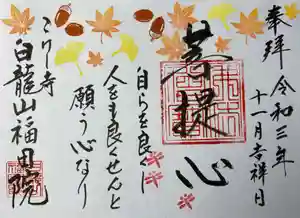 奉拝
令和三年
十一月吉祥日
菩提心
自らを良くし
人をも良くせんと
願う心なり
こけ寺
白龍山福田院